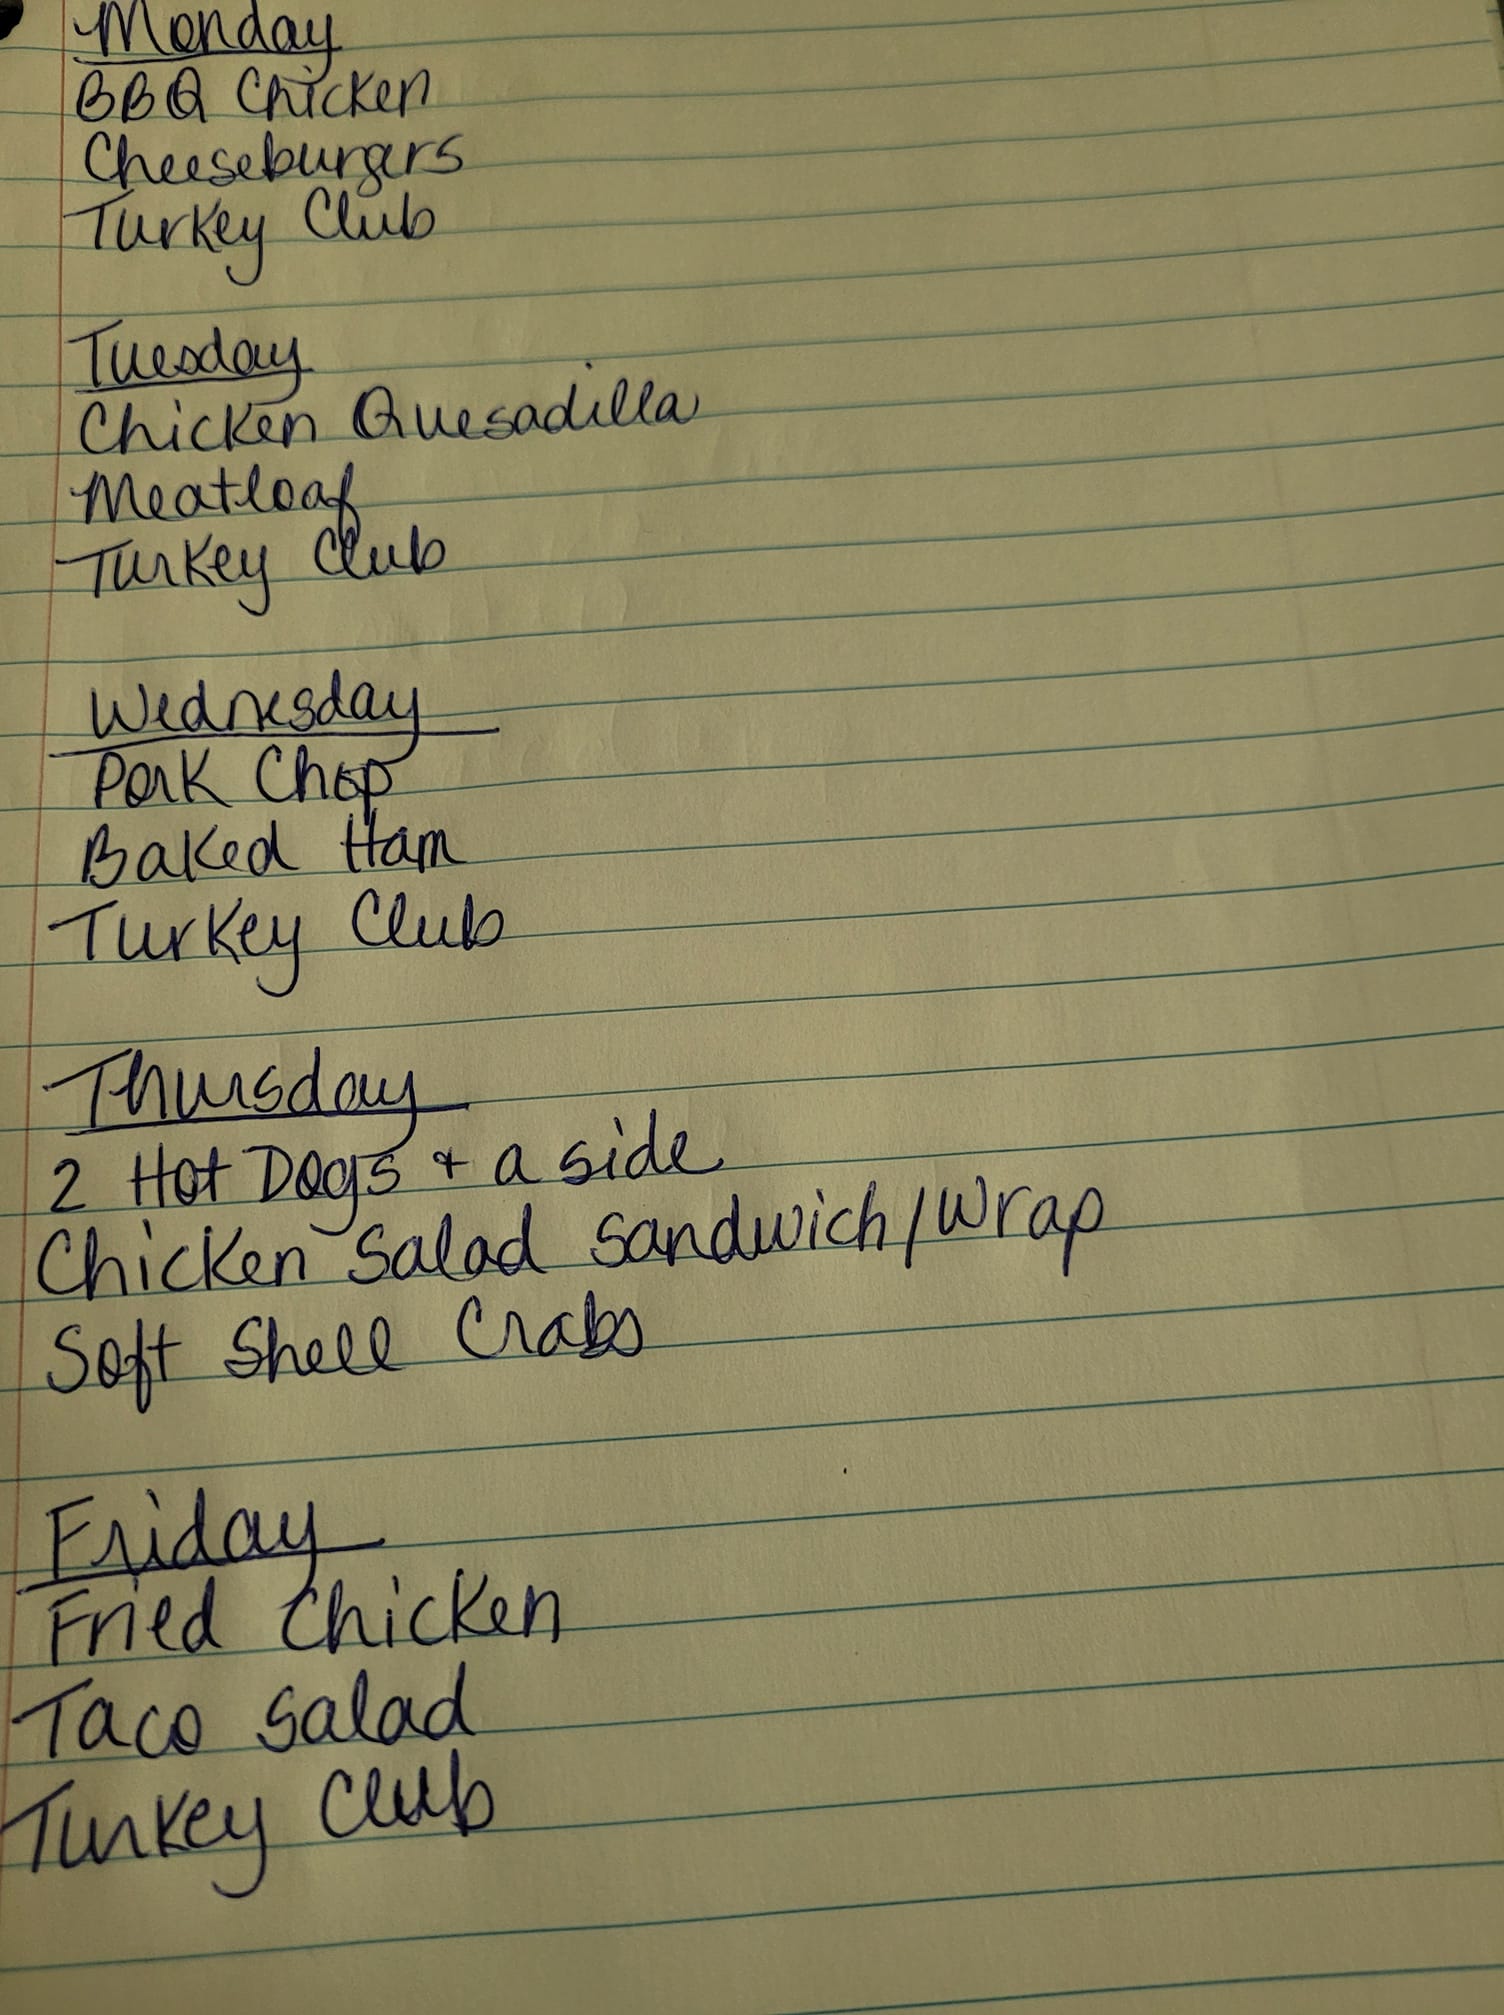 Monday
BBQ Chicken
Cheeseburgers
Turkey Club
Tuesday
Chicken Quesadilla
Meatloaf
Turkey Club
Wednesday
Pork Chop
Baked Ham
Turkey Club
Thursday
2 Hot Dogs + a side
Chicken Salad Sandwich/Wrap
Soft Shell Crabs
Friday
Fried Chicken
Taco Salad
Turkey Club